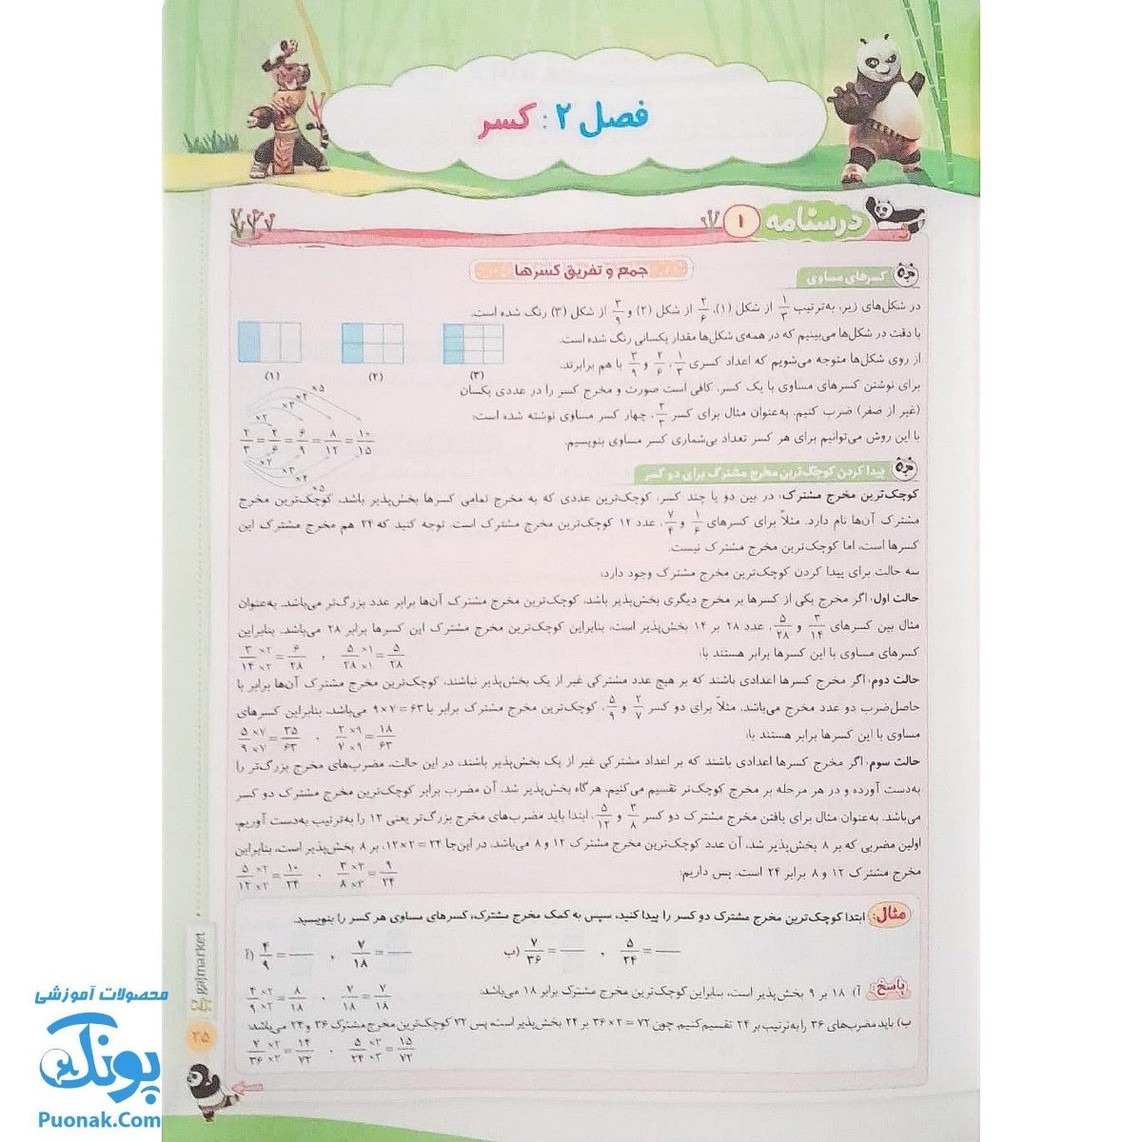 فصل ۲ : کسر
درسنامه ۱
جمع و تفریق کسرها
کسرهای مساوی
در شکل‌های زیر، به‌ترتیب ۱/۳ از شکل (۱)، ۲/۶ از شکل (۲) و ۳/۹ از شکل (۳) رنگ شده است.
با دقت در شکل‌ها می‌بینیم که در همه‌ی شکل‌ها مقدار یکسانی رنگ شده است.
از روی شکل‌ها متوجه می‌شویم که اعداد کسری ۱/۳، ۲/۶ و ۳/۹ با هم برابرند.
(۱) (۲) (۳)
برای نوشتن کسرهای مساوی با یک کسر، کافی است صورت و مخرج کسر را در عددی یکسان
(غیر از صفر) ضرب کنیم. به‌عنوان مثال برای کسر ۲/۳، چهار کسر مساوی نوشته شده است:
×۲ ×۳ ×۴ ×۵
۲/۳ = ۴/۶ = ۶/۹ = ۸/۱۲ = ۱۰/۱۵
×۲ ×۳ ×۴ ×۵
با این روش می‌توانیم برای هر کسر تعداد بی‌شماری کسر مساوی بنویسیم.
پیدا کردن کوچک‌ترین مخرج مشترک برای دو کسر
کوچک‌ترین مخرج مشترک: در بین دو یا چند کسر، کوچک‌ترین عددی که به مخرج تمامی کسرها بخش‌پذیر باشد، کوچک‌ترین مخرج
مشترک آن‌ها نام دارد. مثلاً برای کسرهای ۱/۶ و ۷/۴، عدد ۱۲ کوچک‌ترین مخرج مشترک است. توجه کنید که ۲۴ هم مخرج مشترک این
کسرها است، اما کوچک‌ترین مخرج مشترک نیست.
سه حالت برای پیدا کردن کوچک‌ترین مخرج مشترک وجود دارد:
حالت اول: اگر مخرج یکی از کسرها بر مخرج دیگری بخش‌پذیر باشد، کوچک‌ترین مخرج مشترک آن‌ها برابر عدد بزرگ‌تر می‌باشد. به‌عنوان
مثال بین کسرهای ۳/۱۴ و ۵/۲۸، عدد ۲۸ بر ۱۴ بخش‌پذیر است، بنابراین کوچک‌ترین مخرج مشترک این کسرها برابر ۲۸ می‌باشد. بنابراین
کسرهای مساوی با این کسرها برابر هستند با:
۳×۲/۱۴×۲ = ۶/۲۸ , ۵×۱/۲۸×۱ = ۵/۲۸
حالت دوم: اگر مخرج کسرها اعدادی باشند که بر هیچ عدد مشترکی غیر از یک بخش‌پذیر نباشند، کوچک‌ترین مخرج مشترک آن‌ها برابر با
حاصل‌ضرب دو عدد مخرج می‌باشد. مثلاً برای دو کسر ۲/۷ و ۵/۹، کوچک‌ترین مخرج مشترک برابر با ۹×۷=۶۳ می‌باشد. بنابراین کسرهای
مساوی با این کسرها برابر هستند با:
۵×۷/۹×۷ = ۳۵/۶۳ , ۲×۹/۷×۹ = ۱۸/۶۳
حالت سوم: اگر مخرج کسرها اعدادی باشند که بر اعداد مشترکی غیر از یک بخش‌پذیر باشند، در این حالت، مضرب‌های مخرج بزرگ‌تر را
به‌دست آورده و در هر مرحله بر مخرج کوچک‌تر تقسیم می‌کنیم. هرگاه بخش‌پذیر شد، آن مضرب برابر کوچک‌ترین مخرج مشترک دو کسر
می‌باشد. به‌عنوان مثال برای یافتن مخرج مشترک دو کسر ۳/۸ و ۵/۱۲، ابتدا باید مضرب‌های مخرج بزرگ‌تر یعنی ۱۲ را به‌ترتیب به‌دست آوریم.
اولین مضربی که بر ۸ بخش‌پذیر شد، آن عدد کوچک‌ترین مخرج مشترک ۱۲ و ۸ می‌باشد. در این‌جا ۱۲×۲=۲۴، بر ۸ بخش‌پذیر است، بنابراین
مخرج مشترک ۱۲ و ۸ برابر ۲۴ است. پس داریم:
۵×۲/۱۲×۲ = ۱۰/۲۴ , ۳×۳/۸×۳ = ۹/۲۴
مثال: ابتدا کوچک‌ترین مخرج مشترک دو کسر را پیدا کنید، سپس به کمک مخرج مشترک، کسرهای مساوی هر کسر را بنویسید.
آ) ۴/۹ = — , ۷/۱۸ = —
ب) ۷/۳۶ = — , ۵/۲۴ = —
پاسخ: آ) ۱۸ بر ۹ بخش‌پذیر است، بنابراین کوچک‌ترین مخرج مشترک برابر ۱۸ می‌باشد:
۴×۲/۹×۲ = ۸/۱۸ , ۷/۱۸ = ۷/۱۸
ب) باید مضرب‌های ۳۶ را به‌ترتیب بر ۲۴ تقسیم کنیم. چون ۷۲ = ۲×۳۶ بر ۲۴ بخش‌پذیر است، پس ۷۲ کوچک‌ترین مخرج مشترک ۳۶ و ۲۴ می‌باشد:
۷×۲/۳۶×۲ = ۱۴/۷۲ , ۵×۳/۲۴×۳ = ۱۵/۷۲
gajmarket
۲۵
محصولات آموزشی
پونک
Puonak.Com